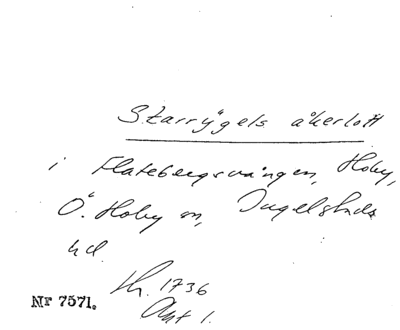 Starrygels åkerlott
i Flatebergsvången, Hoby,
Ö. Hoby sn, Ingelstads
hd.
Lh. 1736
Akt 1.
Nr 7571.